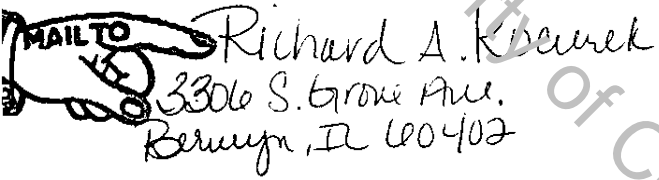 MAIL TO
Richard A. Kocurek
3306 S. Grove Ave.
Berwyn, IL 60402
ty of C